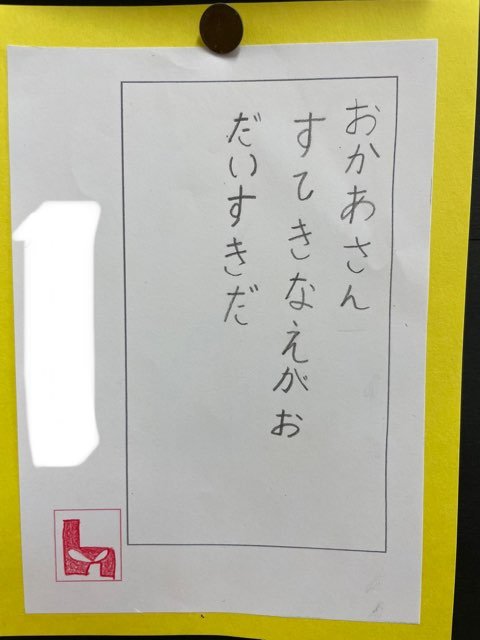 おかあさん
すてきなえがお
だいすきだ